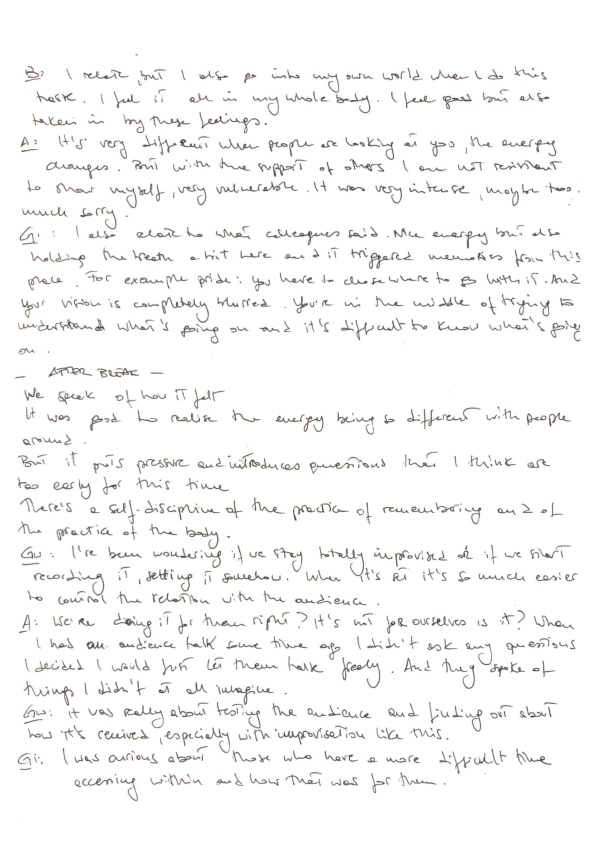 B: I relate, but I also go into my own world when I do this
task. I feel it all in my whole body. I feel good but also
taken in by these feelings.
A: It's very different when people are looking at you, the energy
changes. But with the support of others I am not resistant
to show myself, very vulnerable. It was very intense, maybe too.
much sorry.
Gi: I also relate to what colleagues said. Nice energy but also
holding the breath a bit here and it triggered memories from this
place. For example pride: you have to chose where to go with it. And
your vision is completely blurred. You're in the middle of trying to
understand what's going on and it's difficult to know what's going
on.
— AFTER BREAK —
We speak of how it felt
It was good to realise the energy being so different with people
around.
But it puts pressure and introduces questions that I think are
too early for this time
There's a self-discipline of the practice of remembering and of
the practice of the body.
Gu: I've been wondering if we stay totally improvised or if we start
recording it, setting it somehow. When it's set it's so much easier
to control the relation with the audience.
A: We're doing it for them right? It's not for ourselves is it? When
I had an audience talk some time ago I didn't ask any questions
I decided I would just let them talk freely. And they spoke of
things I didn't at all imagine.
Gu: it was really about testing the audience and finding out about
how it's received, especially with improvisation like this.
Gi: I was curious about those who have a more difficult time
accessing within and how that was for them.